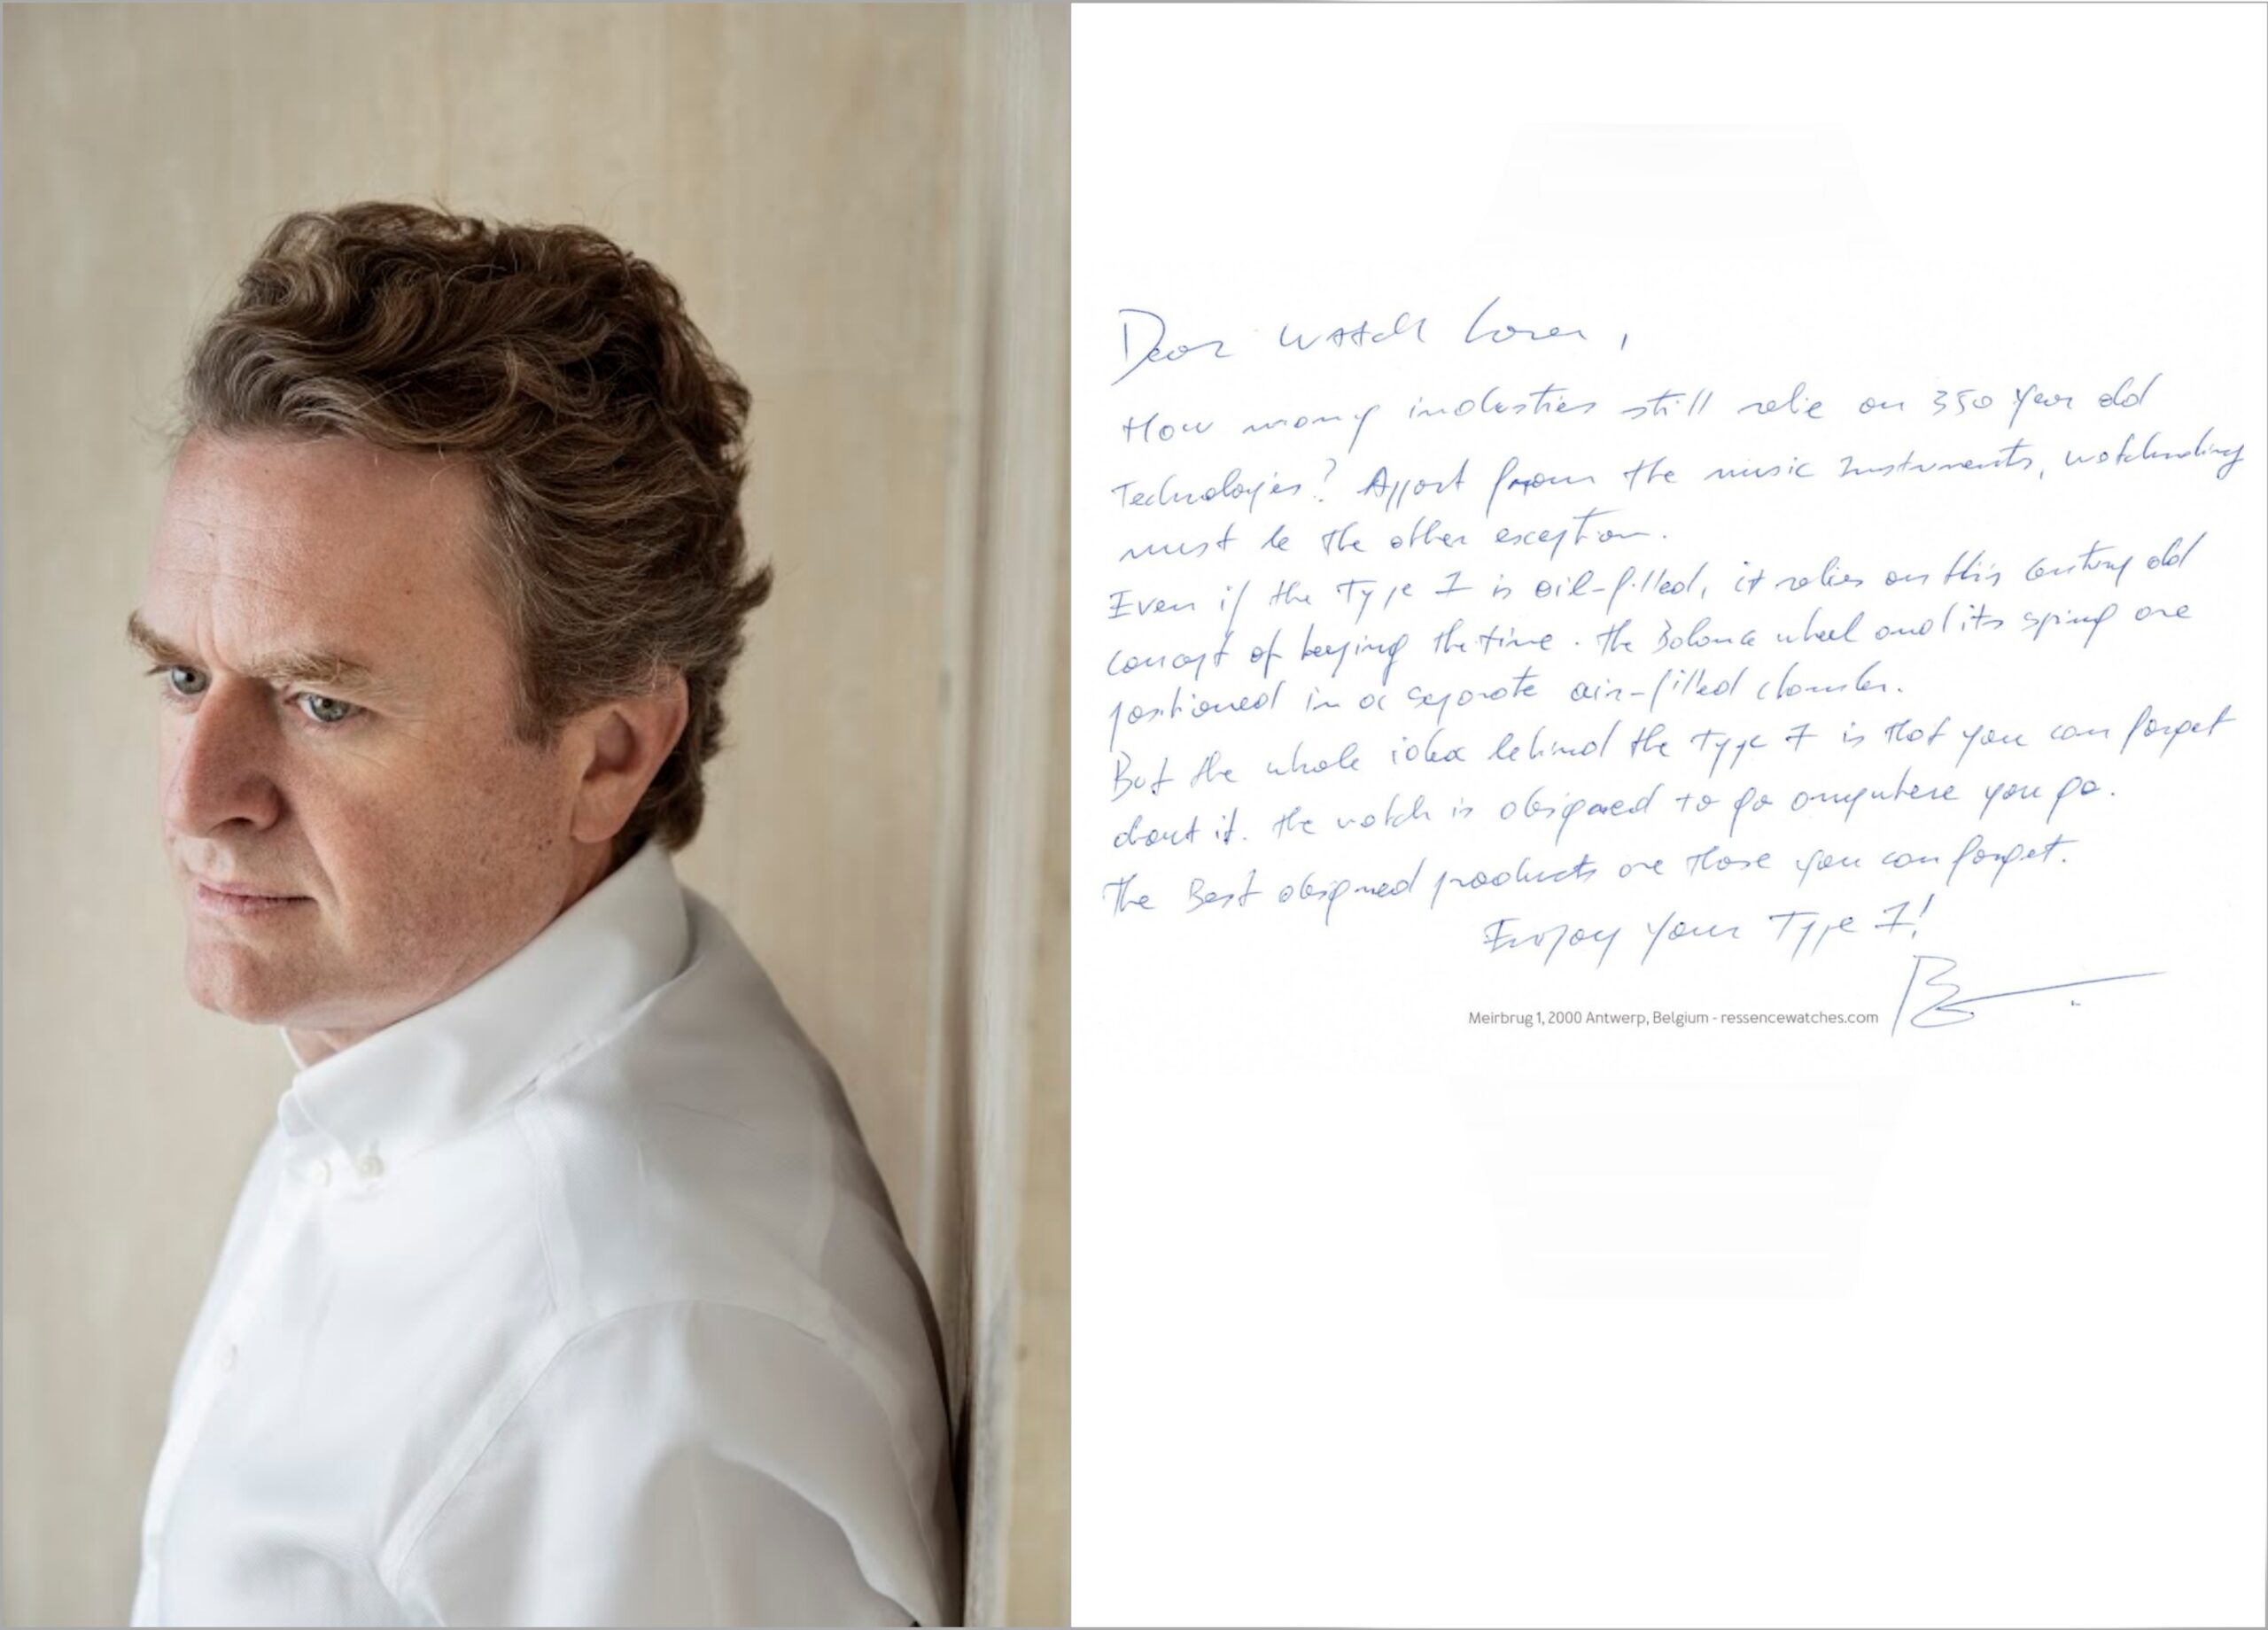 Dear watch lover,
How many industries still relie on 350 year old
Technologies? Appart from the music Instruments, watchmaking
must be the other exception.
Even if the Type 7 is oil-filled, it relies on this century old
concept of keeping the time. The Balance wheel and its spring are
positioned in a separate air-filled chamber.
But the whole idea behind the Type 7 is that you can forget
about it. The watch is designed to go anywhere you go.
The Best designed products are those you can forget.
Enjoy your Type 7!
Meirbrug 1, 2000 Antwerp, Belgium - ressencewatches.com